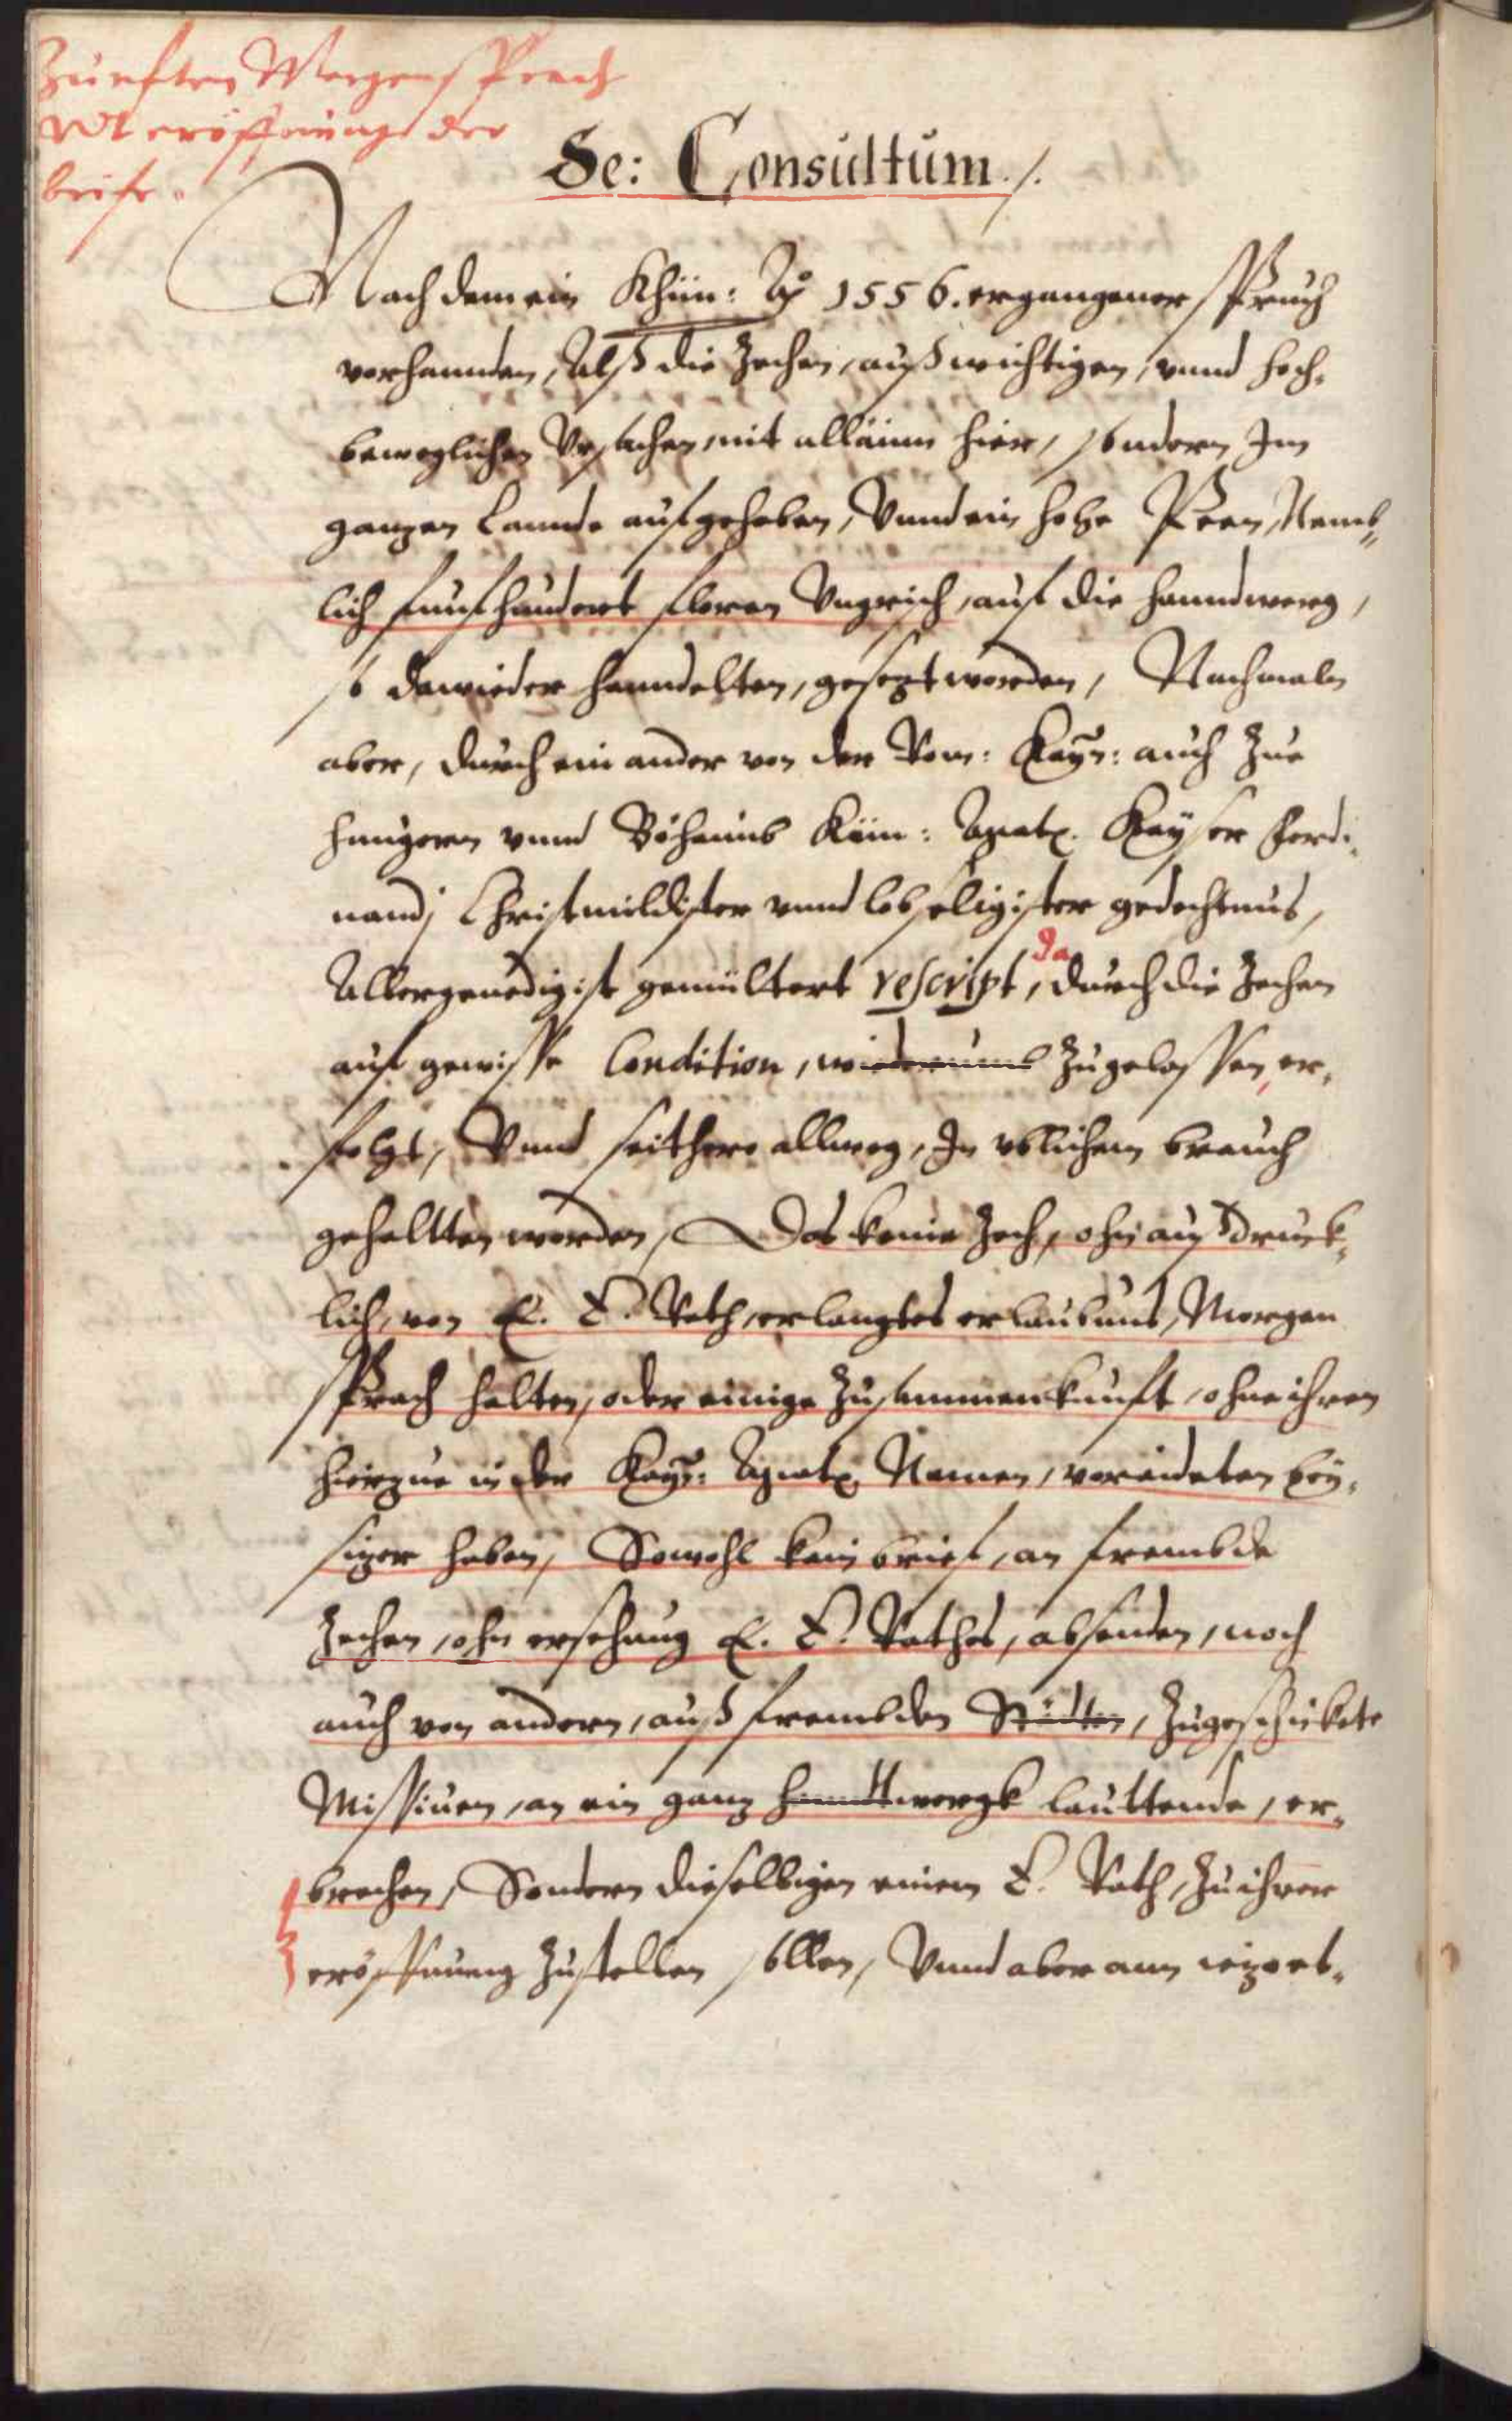 Zunfften Morgensprach
vnd eröffnung der
briefe.
Se: Consultum ./.
Nach dem ein Khün: Ao 1556. ergangener Spruch
verhannden, Alß die Zechen, auß wichtigen, vnnd hoch,
beweglichen Vrsachen, nit allainn hier, sondern Im
ganzen Lannde aufgehoben, Vnnd ein hohe Peen, Nemb„
lich funfhundert floren Vngrisch, auf die hanndwerg,
so dawieder hanndelten, gesezt worden, Nachmaln
aber, durch ein ander von der Röm: Kays: auch Zue
Hungern vnnd Böhaimb Küni: Maytt. Kayser Ferdi,
nandj Christmildister vnnd lobseligister gedechtnus,
Allergenedigist gemiltert rescript, da durch die Zechen
auf gewisse Condition, wiederumb Zugelassen, er,
folgt, Vnnd seithero allweg, In vblichem brauch
gehaltten worden, Das keine Zech, ohn außdruck,
lich, von E. E. Rath, erlangtes erlaubnus, Morgen
Sprach halten, oder einige Zusammenkunfft, ohne ihren
hierzue in der Kays: Maytt. Namen, vereideten bey,
sizer haben, Sowohl kein brief, an frembde
Zechen, ohn ersehung E. E. Rathes, absenden, noch
auch von andern, auß frembden Städten, Zugeschickete
Missiuen, an ein ganz handtwergk lauttende, er,
brechen, Sondern dieselbigen einem E. Rath, Zu ihrer
eröffnung Zustellen sollen, Vnnd aber ann